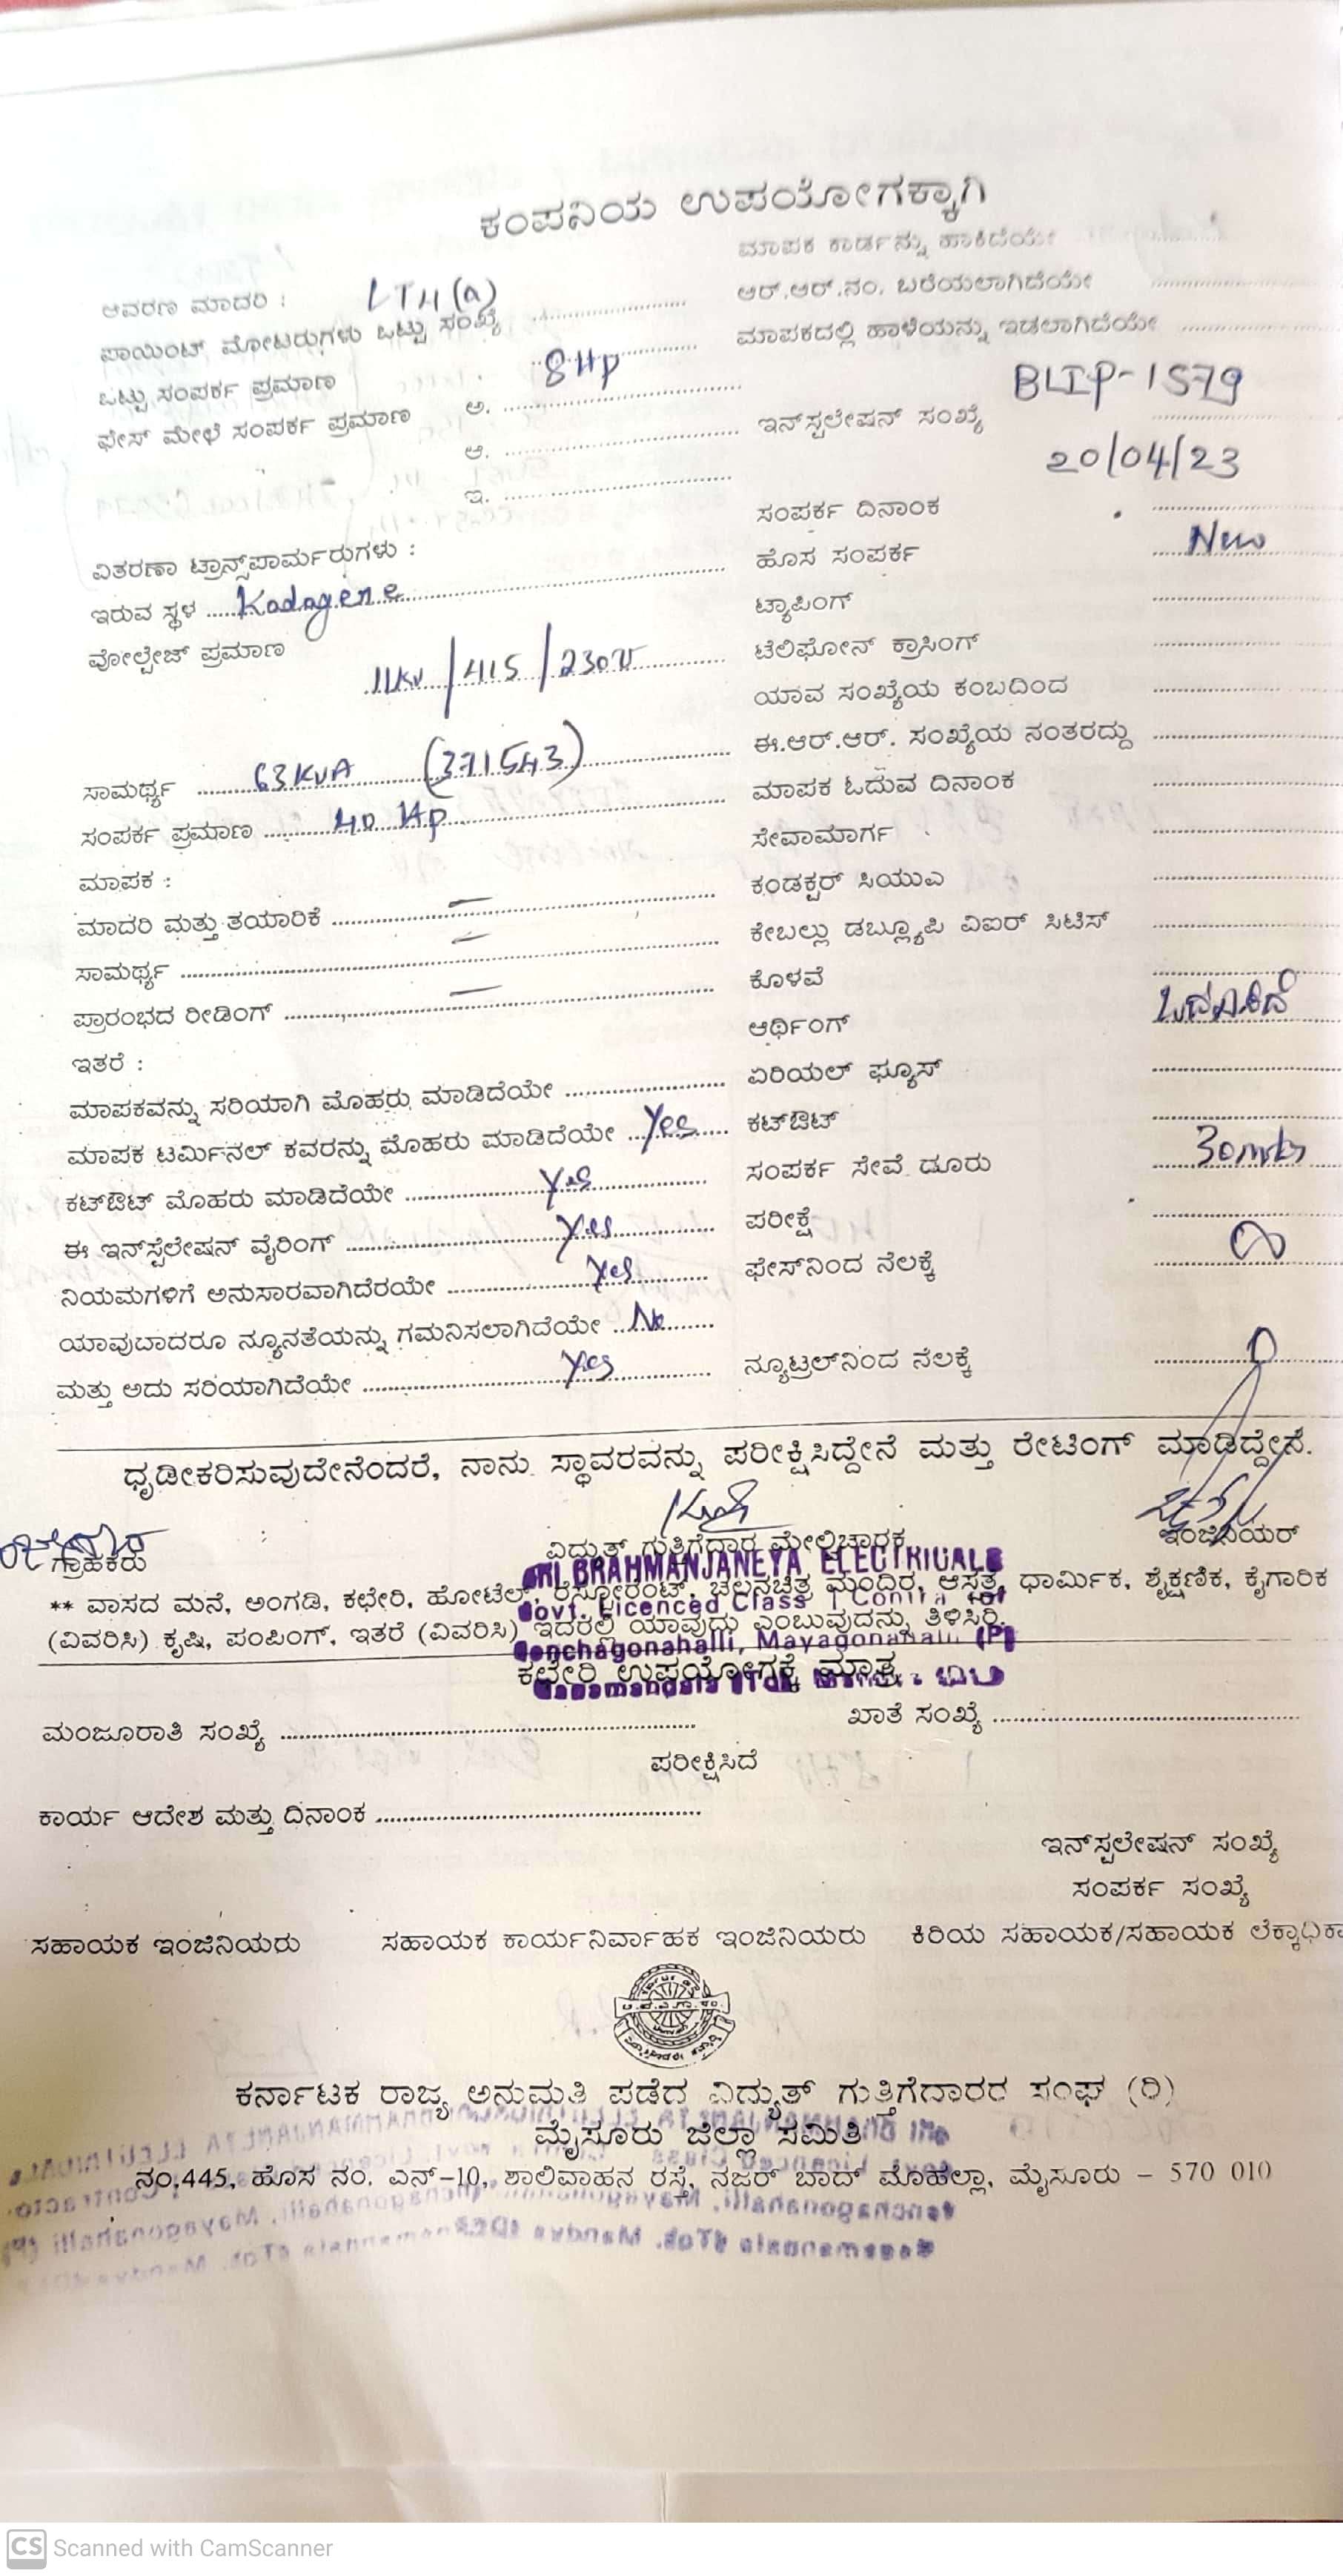 ಕಂಪನಿಯ ಉಪಯೋಗಕ್ಕಾಗಿ
ಮಾಪಕ ಕಾರ್ಡನ್ನು ಹಾಕಿದೆಯೇ
ಆವರಣ ಮಾದರಿ :
ಆರ್.ಆರ್.ನಂ. ಬರೆಯಲಾಗಿದೆಯೇ
ಪಾಯಿಂಟ್ ಮೋಟರುಗಳು ಒಟ್ಟು ಸಂಖ್ಯೆ
ಮಾಪಕದಲ್ಲಿ ಹಾಳೆಯನ್ನು ಇಡಲಾಗಿದೆಯೇ
ಒಟ್ಟು ಸಂಪರ್ಕ ಪ್ರಮಾಣ 8 Hp
ಫೇಸ್ ಮೇಳೆ ಸಂಪರ್ಕ ಪ್ರಮಾಣ ಅ.
ಇನ್‌ಸ್ಟಲೇಷನ್ ಸಂಖ್ಯೆ BLIP-1579
ಆ.
ಇ.
ಸಂಪರ್ಕ ದಿನಾಂಕ 20/04/23
ವಿತರಣಾ ಟ್ರಾನ್ಸ್‌ಪಾರ್ಮರುಗಳು :
ಹೊಸ ಸಂಪರ್ಕ New
ಇರುವ ಸ್ಥಳ Kodagere
ಟ್ಯಾಪಿಂಗ್
ವೋಲ್ಟೇಜ್ ಪ್ರಮಾಣ 11KV/415/230V
ಟೆಲಿಫೋನ್ ಕ್ರಾಸಿಂಗ್
ಯಾವ ಸಂಖ್ಯೆಯ ಕಂಬದಿಂದ
ಸಾಮರ್ಥ್ಯ 63KVA (371543)
ಈ.ಆರ್.ಆರ್. ಸಂಖ್ಯೆಯ ನಂತರದ್ದು
ಸಂಪರ್ಕ ಪ್ರಮಾಣ 40 Hp
ಮಾಪಕ ಓದುವ ದಿನಾಂಕ
ಮಾಪಕ :
ಸೇವಾಮಾರ್ಗ
ಮಾದರಿ ಮತ್ತು ತಯಾರಿಕೆ —
ಕಂಡಕ್ಟರ್ ಸಿಯುಎ
ಸಾಮರ್ಥ್ಯ —
ಕೇಬಲ್ಲು ಡಬ್ಲ್ಯೂಪಿ ವಿಐರ್ ಸಿಟಿಸ್
ಪ್ರಾರಂಭದ ರೀಡಿಂಗ್ —
ಕೊಳವೆ
ಇತರೆ :
ಆರ್ಥಿಂಗ್
ಮಾಪಕವನ್ನು ಸರಿಯಾಗಿ ಮೊಹರು ಮಾಡಿದೆಯೇ
ಏರಿಯಲ್ ಫ್ಯೂಸ್
ಮಾಪಕ ಟರ್ಮಿನಲ್ ಕವರನ್ನು ಮೊಹರು ಮಾಡಿದೆಯೇ Yes
ಕಟ್‌ಔಟ್
ಕಟ್‌ಔಟ್ ಮೊಹರು ಮಾಡಿದೆಯೇ Yes
ಸಂಪರ್ಕ ಸೇವೆ ದೂರು 30mts
ಈ ಇನ್‌ಸ್ಟೆಲೇಷನ್ ವೈರಿಂಗ್ Yes
ಪರೀಕ್ಷೆ
ನಿಯಮಗಳಿಗೆ ಅನುಸಾರವಾಗಿದೆರಯೇ Yes
ಫೇಸ್‌ನಿಂದ ನೆಲಕ್ಕೆ
ಯಾವುಬಾದರೂ ನ್ಯೂನತೆಯನ್ನು ಗಮನಿಸಲಾಗಿದೆಯೇ No
ಮತ್ತು ಅದು ಸರಿಯಾಗಿದೆಯೇ Yes
ನ್ಯೂಟ್ರಲ್‌ನಿಂದ ನೆಲಕ್ಕೆ
ಧೃಡೀಕರಿಸುವುದೇನೆಂದರೆ, ನಾನು ಸ್ಥಾವರವನ್ನು ಪರೀಕ್ಷಿಸಿದ್ದೇನೆ ಮತ್ತು ರೇಟಿಂಗ್ ಮಾಡಿದ್ದೇನೆ.
ಗ್ರಾಹಕರು
ವಿದ್ಯುತ್ ಗುತ್ತಿಗೆದಾರ ಮೇಲ್ವಿಚಾರಕ
ಇಂಜಿನಿಯರ್
SRI BRAHMANJANEYA ELECTRICALS
** ವಾಸದ ಮನೆ, ಅಂಗಡಿ, ಕಛೇರಿ, ಹೋಟೆಲ್, ರೆಸ್ಟೋರೆಂಟ್, ಚಲನಚಿತ್ರ ಮಂದಿರ, ಆಸ್ಪತ್ರೆ, ಧಾರ್ಮಿಕ, ಶೈಕ್ಷಣಿಕ, ಕೈಗಾರಿಕ
Govt. Licenced Class I
(ವಿವರಿಸಿ) ಕೃಷಿ, ಪಂಪಿಂಗ್, ಇತರೆ (ವಿವರಿಸಿ) ಇದರಲ್ಲಿ ಯಾವುದು ಎಂಬುವುದನ್ನು ತಿಳಿಸಿರಿ.
Kenchagonahalli, Mayagonahalli (P)
ಕಛೇರಿ ಉಪಯೋಗಕ್ಕೆ ಮಾತ್ರ
ಮಂಜೂರಾತಿ ಸಂಖ್ಯೆ
ಖಾತೆ ಸಂಖ್ಯೆ
ಪರೀಕ್ಷಿಸಿದೆ
ಕಾರ್ಯ ಆದೇಶ ಮತ್ತು ದಿನಾಂಕ
ಇನ್‌ಸ್ಟಲೇಷನ್ ಸಂಖ್ಯೆ
ಸಂಪರ್ಕ ಸಂಖ್ಯೆ
ಸಹಾಯಕ ಇಂಜಿನಿಯರು ಸಹಾಯಕ ಕಾರ್ಯನಿರ್ವಾಹಕ ಇಂಜಿನಿಯರು ಕಿರಿಯ ಸಹಾಯಕ/ಸಹಾಯಕ
ಕರ್ನಾಟಕ ರಾಜ್ಯ ಅನುಮತಿ ಪಡೆದ ವಿದ್ಯುತ್ ಗುತ್ತಿಗೆದಾರರ ಸಂಘ (ರಿ)
ಮೈಸೂರು ಜಿಲ್ಲಾ ಸಮಿತಿ
ನಂ.445, ಹೊಸ ನಂ. ಎನ್-10, ಶಾಲಿವಾಹನ ರಸ್ತೆ, ನಜರ್ ಬಾದ್ ಮೊಹೆಲ್ಲಾ, ಮೈಸೂರು – 570 010
CS Scanned with CamScanner